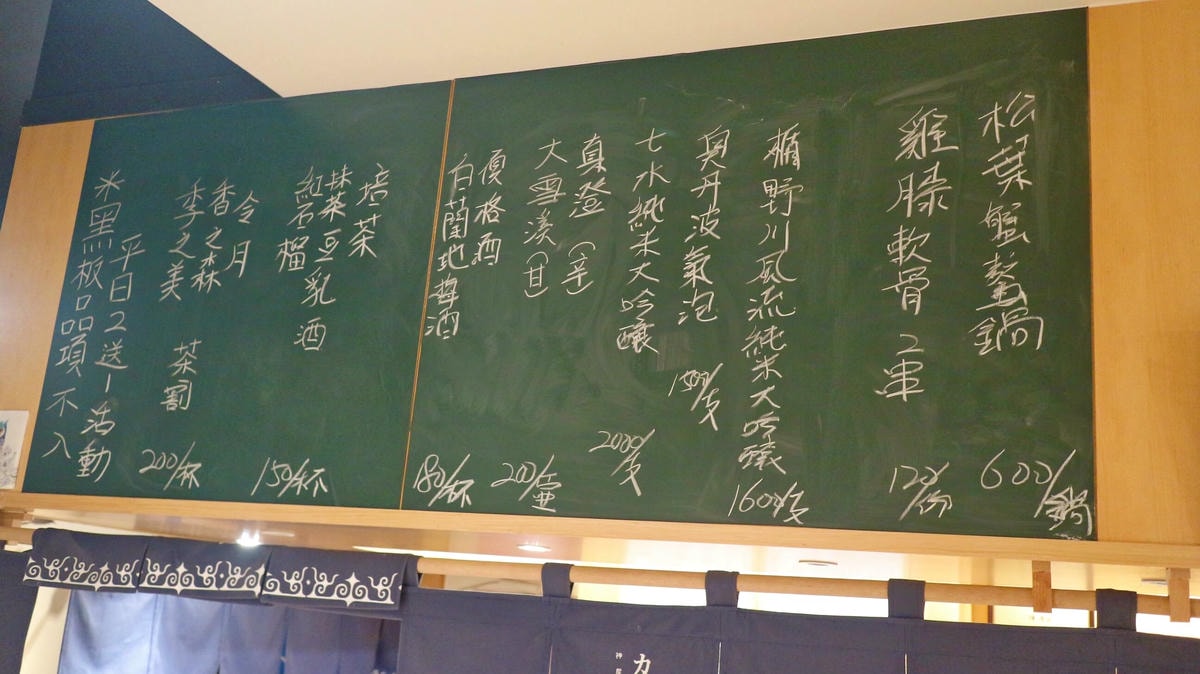 松葉蟹螯鍋 600/鍋
雞膝軟骨2串 120/份
楯野川風流純米大吟釀 1600/支
奧丹波氣泡 1500/支
七水純米大吟釀 2000/支
真澄(辛)
大雪溪(甘) 200/壺
優格酒
白蘭地梅酒 180/杯
焙茶
抹茶豆乳酒
紅石榴 150/杯
令月
香之森
季之美 茶割 200/杯
平日2送1活動
米黑板品項不入
カ